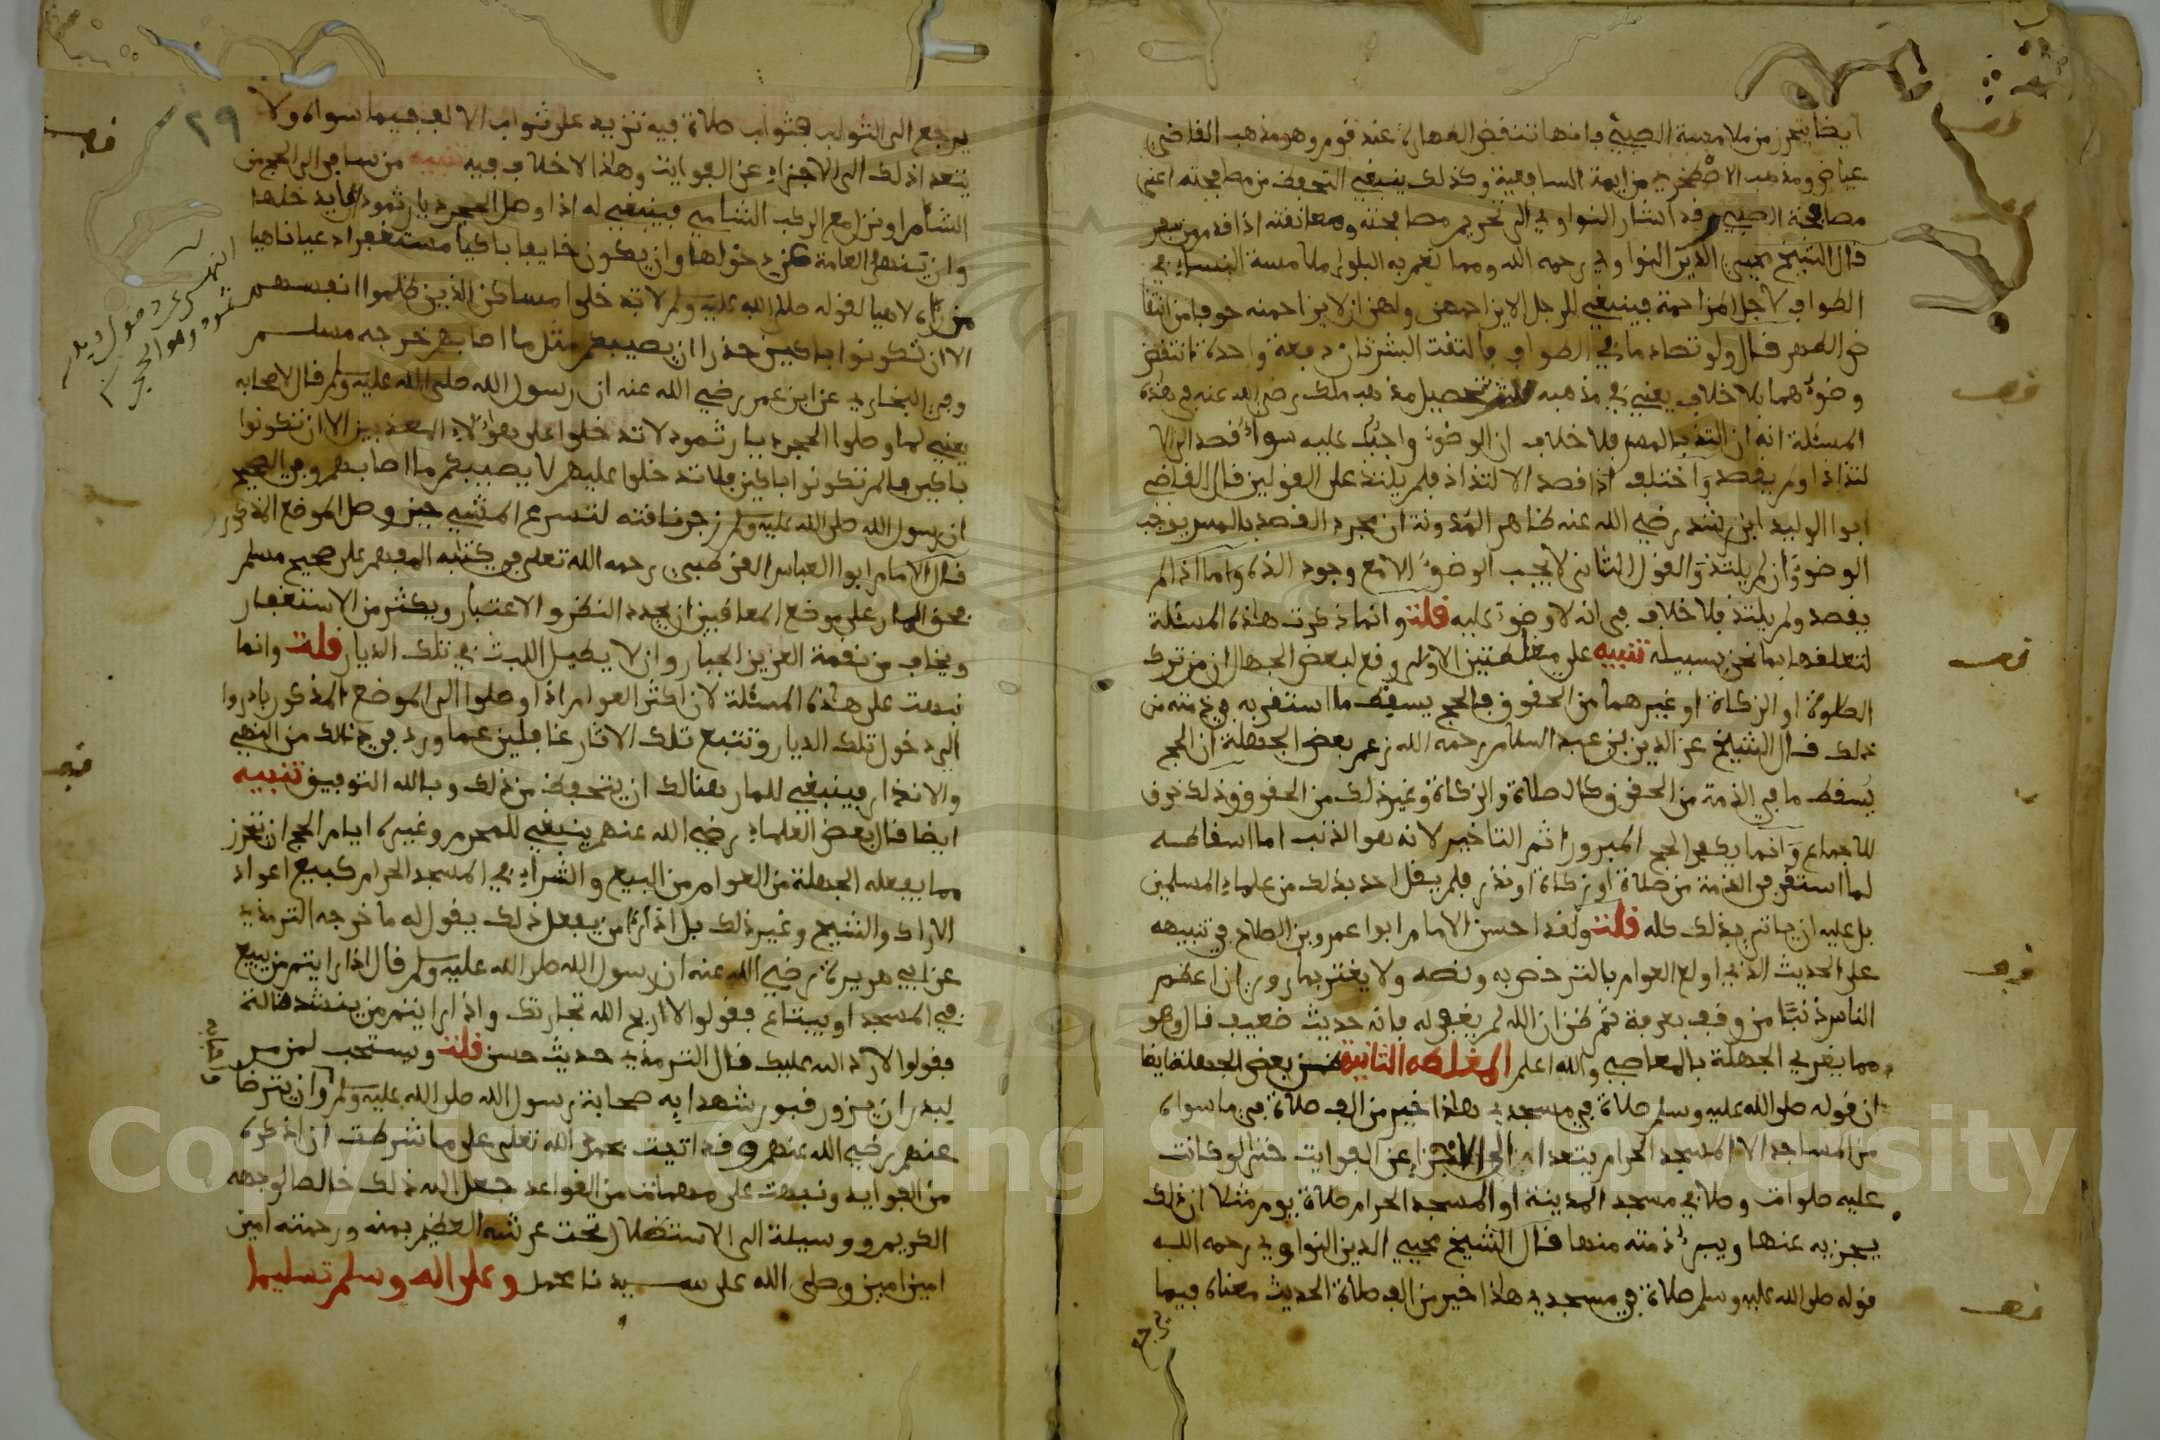 ايضا يتحرز من ملامسة الصبي فانها تنقض الطهارة عند قوم وهو مذهب القاضي
عياض ومذهب الاصطخري من ايمة الشافعية وكذلك ينبغي التحفظ من مصافحته اعني
مصافحة الصبي وقد اشار النواوي الى تحريم مصافحته ومعانقته اذا قدم من سفر
قال الشيخ محيي الدين النواوي رحمه الله ومما تعم به البلوى ملامسة النساء في
الطواف لاجل المزاحمة فينبغي للرجل الا يزاحمهن ولهن ان لا يزاحمنه خوفا من انتقا
ض الطهر قال ولو تصادما في الطواف فالتقت البشرتان دفعة واحدة انتقض
وضوءهما بلا خلاف يعني في مذهبه تحصيل مذهب ملك رضي الله عنه في هذه
المسئلة انه ان التذ باللمس فلا خلاف ان الوضوء واجب عليه سواء قصد الا
لتذاذ او لم يقصد واختلف اذا قصد الالتذاذ فلم يلتذ على القولين قال القاضي
ابوا الوليد ابن رشد رضي الله عنه ظاهر المدونة ان مجرد القصد باللمس يوجب
الوضوء وان لم يلتذ والقول الثاني لا يجب الوضوء الا مع وجود اللذة واما اذا لم
يقصد ولم يلتذ فلا خلاف في انه لا وضوء عليه قلت وانما ذكرت هذه المسئلة
لتعلقها بما نحن بسبيله تنبيه على مغلطتين الاولى وقع لبعض الجهال ان من ترك
الصلوة او الزكاة او غيرهما من الحقوق فالحج يسقط ما استقر به في ذمته من
ذلك قال الشيخ عز الدين بن عبد السلام رحمه الله زعم بعض الجهلة ان الحج
يسقط ما في الذمة من الحقوق كالصلاة والزكاة وغير ذلك من الحقوق وذلك خرق
للاجماع وانما يكفر الحج المبرور اثم التاخير لانه هو الذنب اما اسقاطه
لما استقر في الذمة من صلاة او زكاة او نذر فلم يقل احد بذلك من علماء المسلمين
بل عليه ان ياتي بذلك كله قلت ولقد احسن الامام ابوا عمرو بن الصلاح في تنبيهه
على الحديث الذي اولع العوام بالترخص به ونصه ولا يغتر بما روي ان اعظم
الناس ذنبا من وقف بعرفة ثم ظن ان الله لم يغفر له فانه حديث ضعيف قال وهو
مما يغري الجهلة بالمعاصي والله اعلم المغلطة الثانية ظن بعض الجهلة ايضا
ان قوله صلى الله عليه وسلم صلاة في مسجدي هذا خير من الف صلاة في ما سواه
من المساجد الا المسجد الحرام يتعدا الى الاجزاء عن الفوايت حتى لو كانت
عليه صلوات وصلا في مسجد المدينة او المسجد الحرام صلاة يوم مثلا ان ذلك
يجزيه عنها ويبرئ ذمته منها قال الشيخ محيي الدين النواوي رحمه الله
قوله صلى الله عليه وسلم صلاة في مسجدي هذا خير من الف صلاة الحديث معناه فيما
يرجع
٢٩
يرجع الى الثواب فثواب صلاة فيه تزيد على ثواب الالف فيما سواه ولا
يتعدا ذلك الى الاجزاء عن الفوايت وهذا لا خلاف فيه تنبيه من سافر الى الحج من
الشام او نزل مع الركب الشامي فينبغي له اذا وصل الحجر ديار ثمود الا يدخلها
وان ينهى العامة عن دخولها وان يكون خايفا باكيا مستغفرا داعيا ناهيا
من رءاه لاهيا لقوله صلى الله عليه وسلم لا تدخلوا مساكن الذين ظلموا انفسهم
الا ان تكونوا باكين حذرا ان يصيبكم مثل ما اصابهم خرجه مسلم
وفي البخاري عن ابن عمر رضي الله عنه ان رسول الله صلى الله عليه وسلم قال لاصحابه
يعني لما وصلوا الحجر ديار ثمود لا تدخلوا على هؤلاء المعذبين الا ان تكونوا
باكين فان لم تكونوا باكين فلا تدخلوا عليهم لا يصيبكم ما اصابهم وفي الصحيح
ان رسول الله صلى الله عليه وسلم زجر ناقته لتسرع المشي حين وصل الموضع المذكور
قال الامام ابوا العباس القرطبي رحمه الله تعلى في كتابه المفهم على صحيح مسلم
فحق المار على موضع المعاقبين ان يجدد النظر والاعتبار ويكثر من الاستغفار
ويخاف من نقمة العزيز الجبار وان لا يطيل اللبث في تلك الديار قلت وانما
نبهت على هذه المسئلة لان اكثر العوام اذا وصلوا الى الموضع المذكور بادروا
الى دخول تلك الديار وتتبع تلك الاثار غافلين عما ورد في ذلك من النهي
والانذار فينبغي للمار هنالك ان يتحفظ من ذلك وبالله التوفيق تنبيه
ايضا قال بعض العلماء رضي الله عنهم ينبغي للمحرم وغيره ايام الحج ان يتحرز
مما يفعله الجهلة من العوام من البيع والشراء في المسجد الحرام كبيع اعواد
الاراك والشيح وغير ذلك بل اذا رءا من يفعل ذلك يقول له ما خرجه الترمذي
عن ابي هريرة رضي الله عنه ان رسول الله صلى الله عليه وسلم قال اذا رايتم من يبيع
في المسجد او يبتاع فقولوا لا اربح الله تجارتك واذا رايتم من ينشد ضالة
فقولوا لا رد الله عليك قال الترمذي حديث حسن قلت ويستحب لمن مر
ببدر ان يزور قبور شهدايه صحابة رسول الله صلى الله عليه وسلم وان يترضا
عنهم رضي الله عنهم وقد اتيت بحمد الله تعلى على ما شرطت ان اذكره
من الفوايد ونبهت على مهمات من القواعد جعل الله ذلك خالصا لوجهه
الكريم ووسيلة الى الاستظلال تحت عرشه العظيم بمنه ورحمته امين
امين امين وصلى الله على سيدنا محمد وعلى اله وسلم تسليما
النهي عن دخول ديار
ثمود وهو الحجر